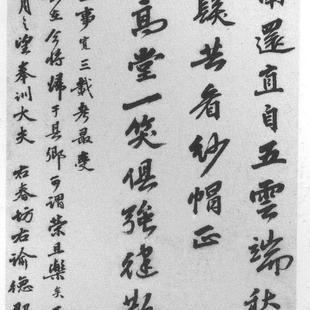 南還直自五雲端秋
苦看紗帽正
高堂一笑俱強健
事宜三載考最受
至今将歸于其鄉可謂榮且樂矣
月之望奉訓大夫右春坊右諭德